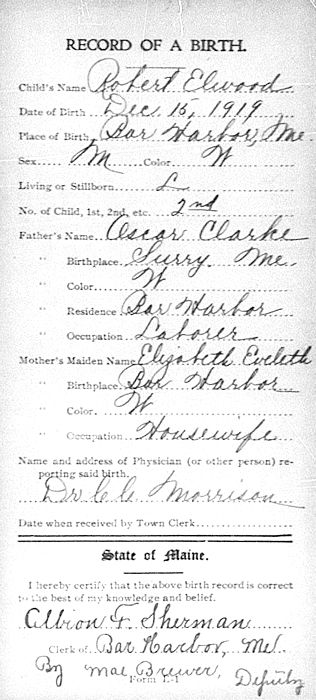 RECORD OF A BIRTH.
Child's Name Robert Elwood
Date of Birth Dec 15, 1919
Place of Birth, Bar Harbor, Me.
Sex M Color W
Living or Stillborn L
No. of Child, 1st, 2nd, etc. 2nd
Father's Name Oscar Clarke
" Birthplace Surry Me.
" Color W
" Residence Bar Harbor
" Occupation Laborer
Mother's Maiden Name Elizabeth Eveleth
" Birthplace Bar Harbor
" Color W
" Occupation Housewife
Name and address of Physician (or other person) re-
porting said birth,
Dr C C Morrison
Date when received by Town Clerk
State of Maine.
I hereby certify that the above birth record is correct
to the best of my knowledge and belief.
Albion F. Sherman
Clerk of Bar Harbor, Me.
By Mae Brewer, Deputy
Form L-1